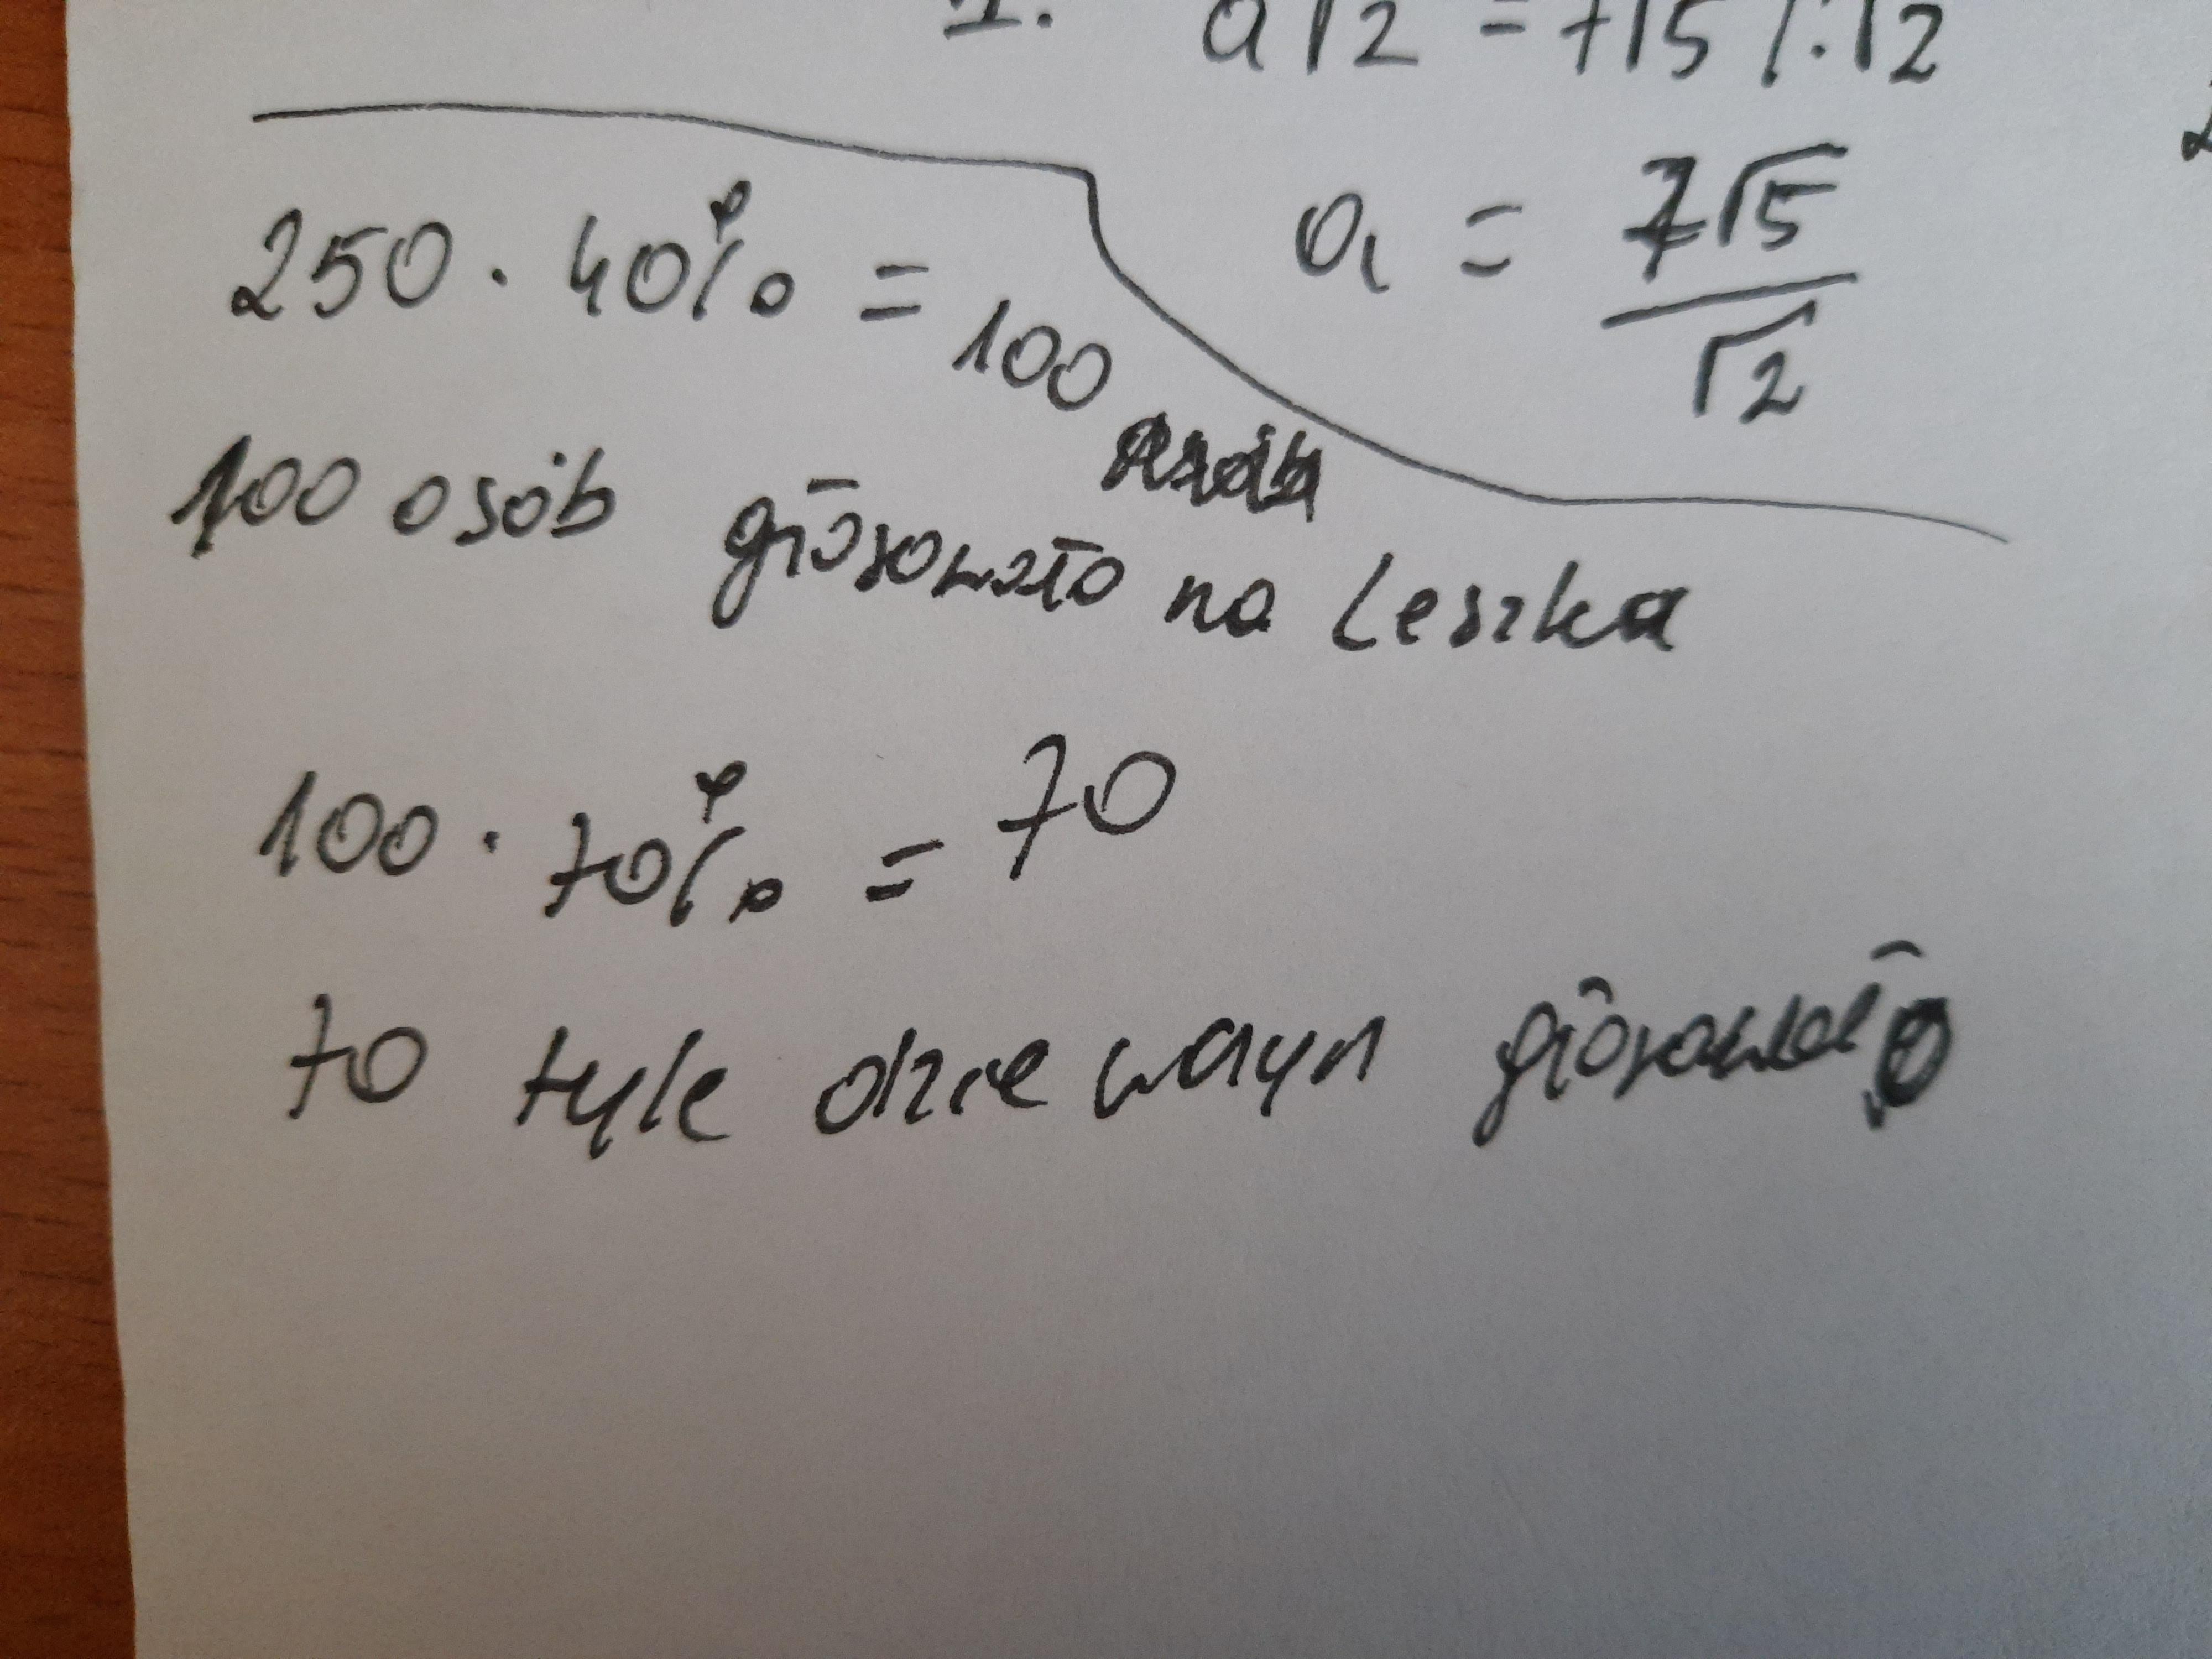 1. a√2 = 7√5 /:√2
a = 7√5/√2
250 · 40% = 100
100 osób głosowało na Leszka
100 · 70% = 70
70 tyle dziewczyn głosowało